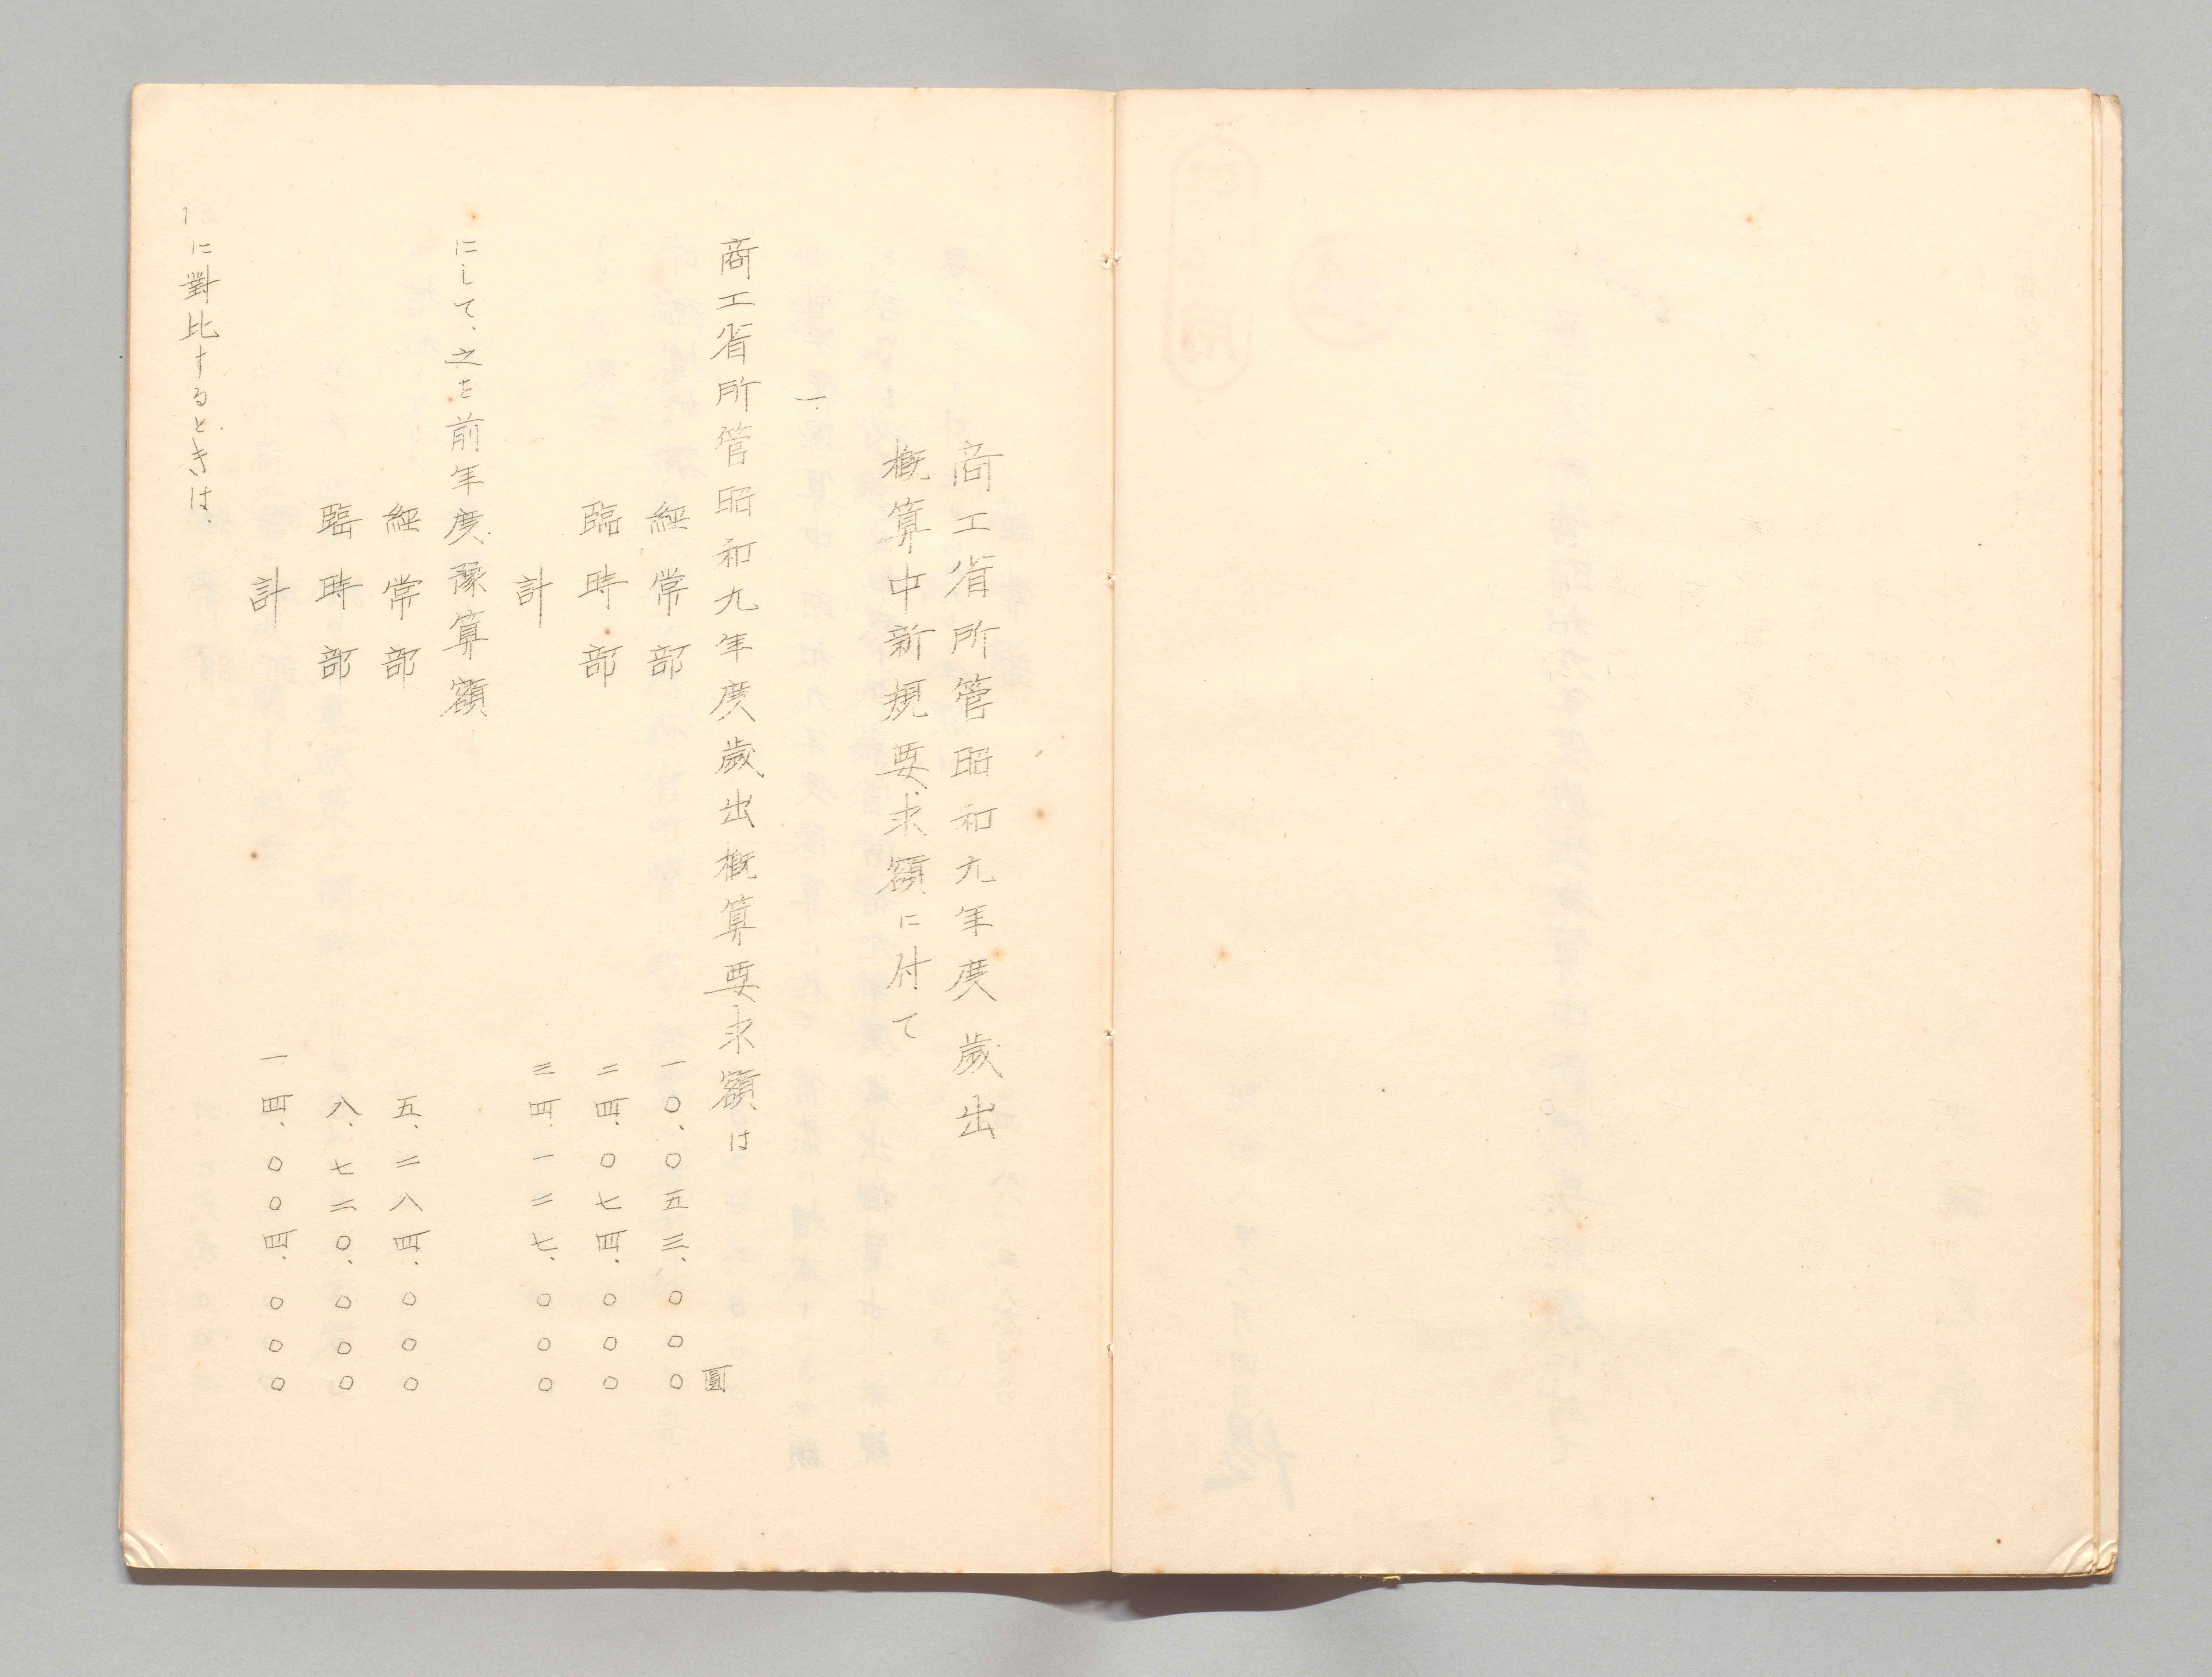 商工省所管昭和九年度歲出
概算中新規要求額に付て
一、
商工省所管昭和九年度歲出概算要求額は
圓
經常部　一〇、〇五三、〇〇〇
臨時部　二四、〇七四、〇〇〇
計　三四、一二七、〇〇〇
にして、之を前年度豫算額
經常部　五、二八四、〇〇〇
臨時部　八、七二〇、〇〇〇
計　一四、〇〇四、〇〇〇
に對比するときは、
1